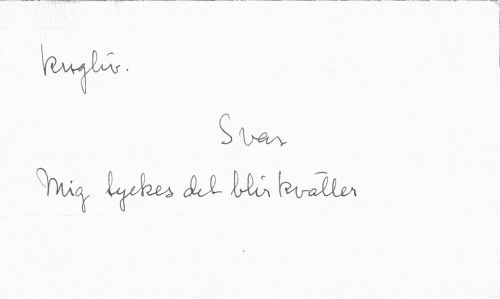 Krogliv.
Svar
Mig tyckes det blir kväller